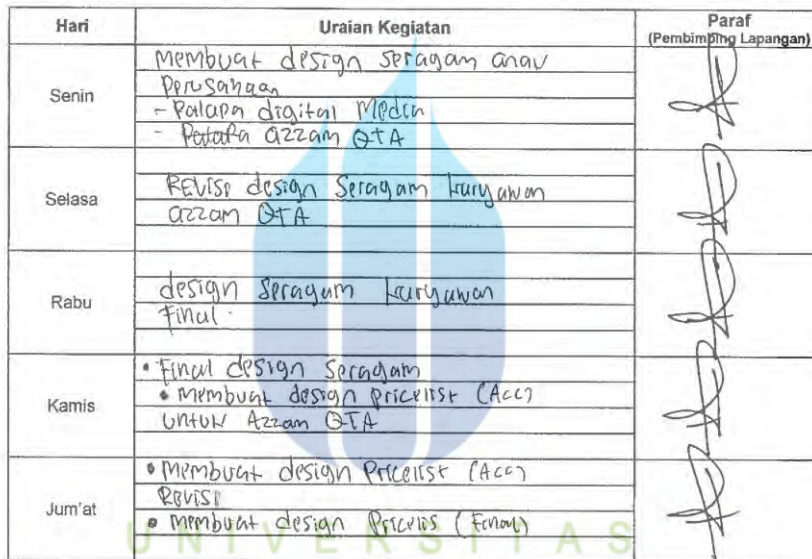 Hari Uraian Kegiatan Paraf
(Pembimbing Lapangan)
Senin
Membuat design seragam anak
Perusahaan
- Palapa digital Media
- Palapa azzam QTA
Selasa
REVISI design Seragam karyawan
azzam QTA
Rabu
design Seragam karyawan
Final
Kamis
• Final design Seragam
• Membuat design pricelist (Acc)
untuk Azzam QTA
Jum'at
• Membuat design Pricelist (Acc)
Revisi
• membuat design Pricelis (Final)
UNIVERSITAS